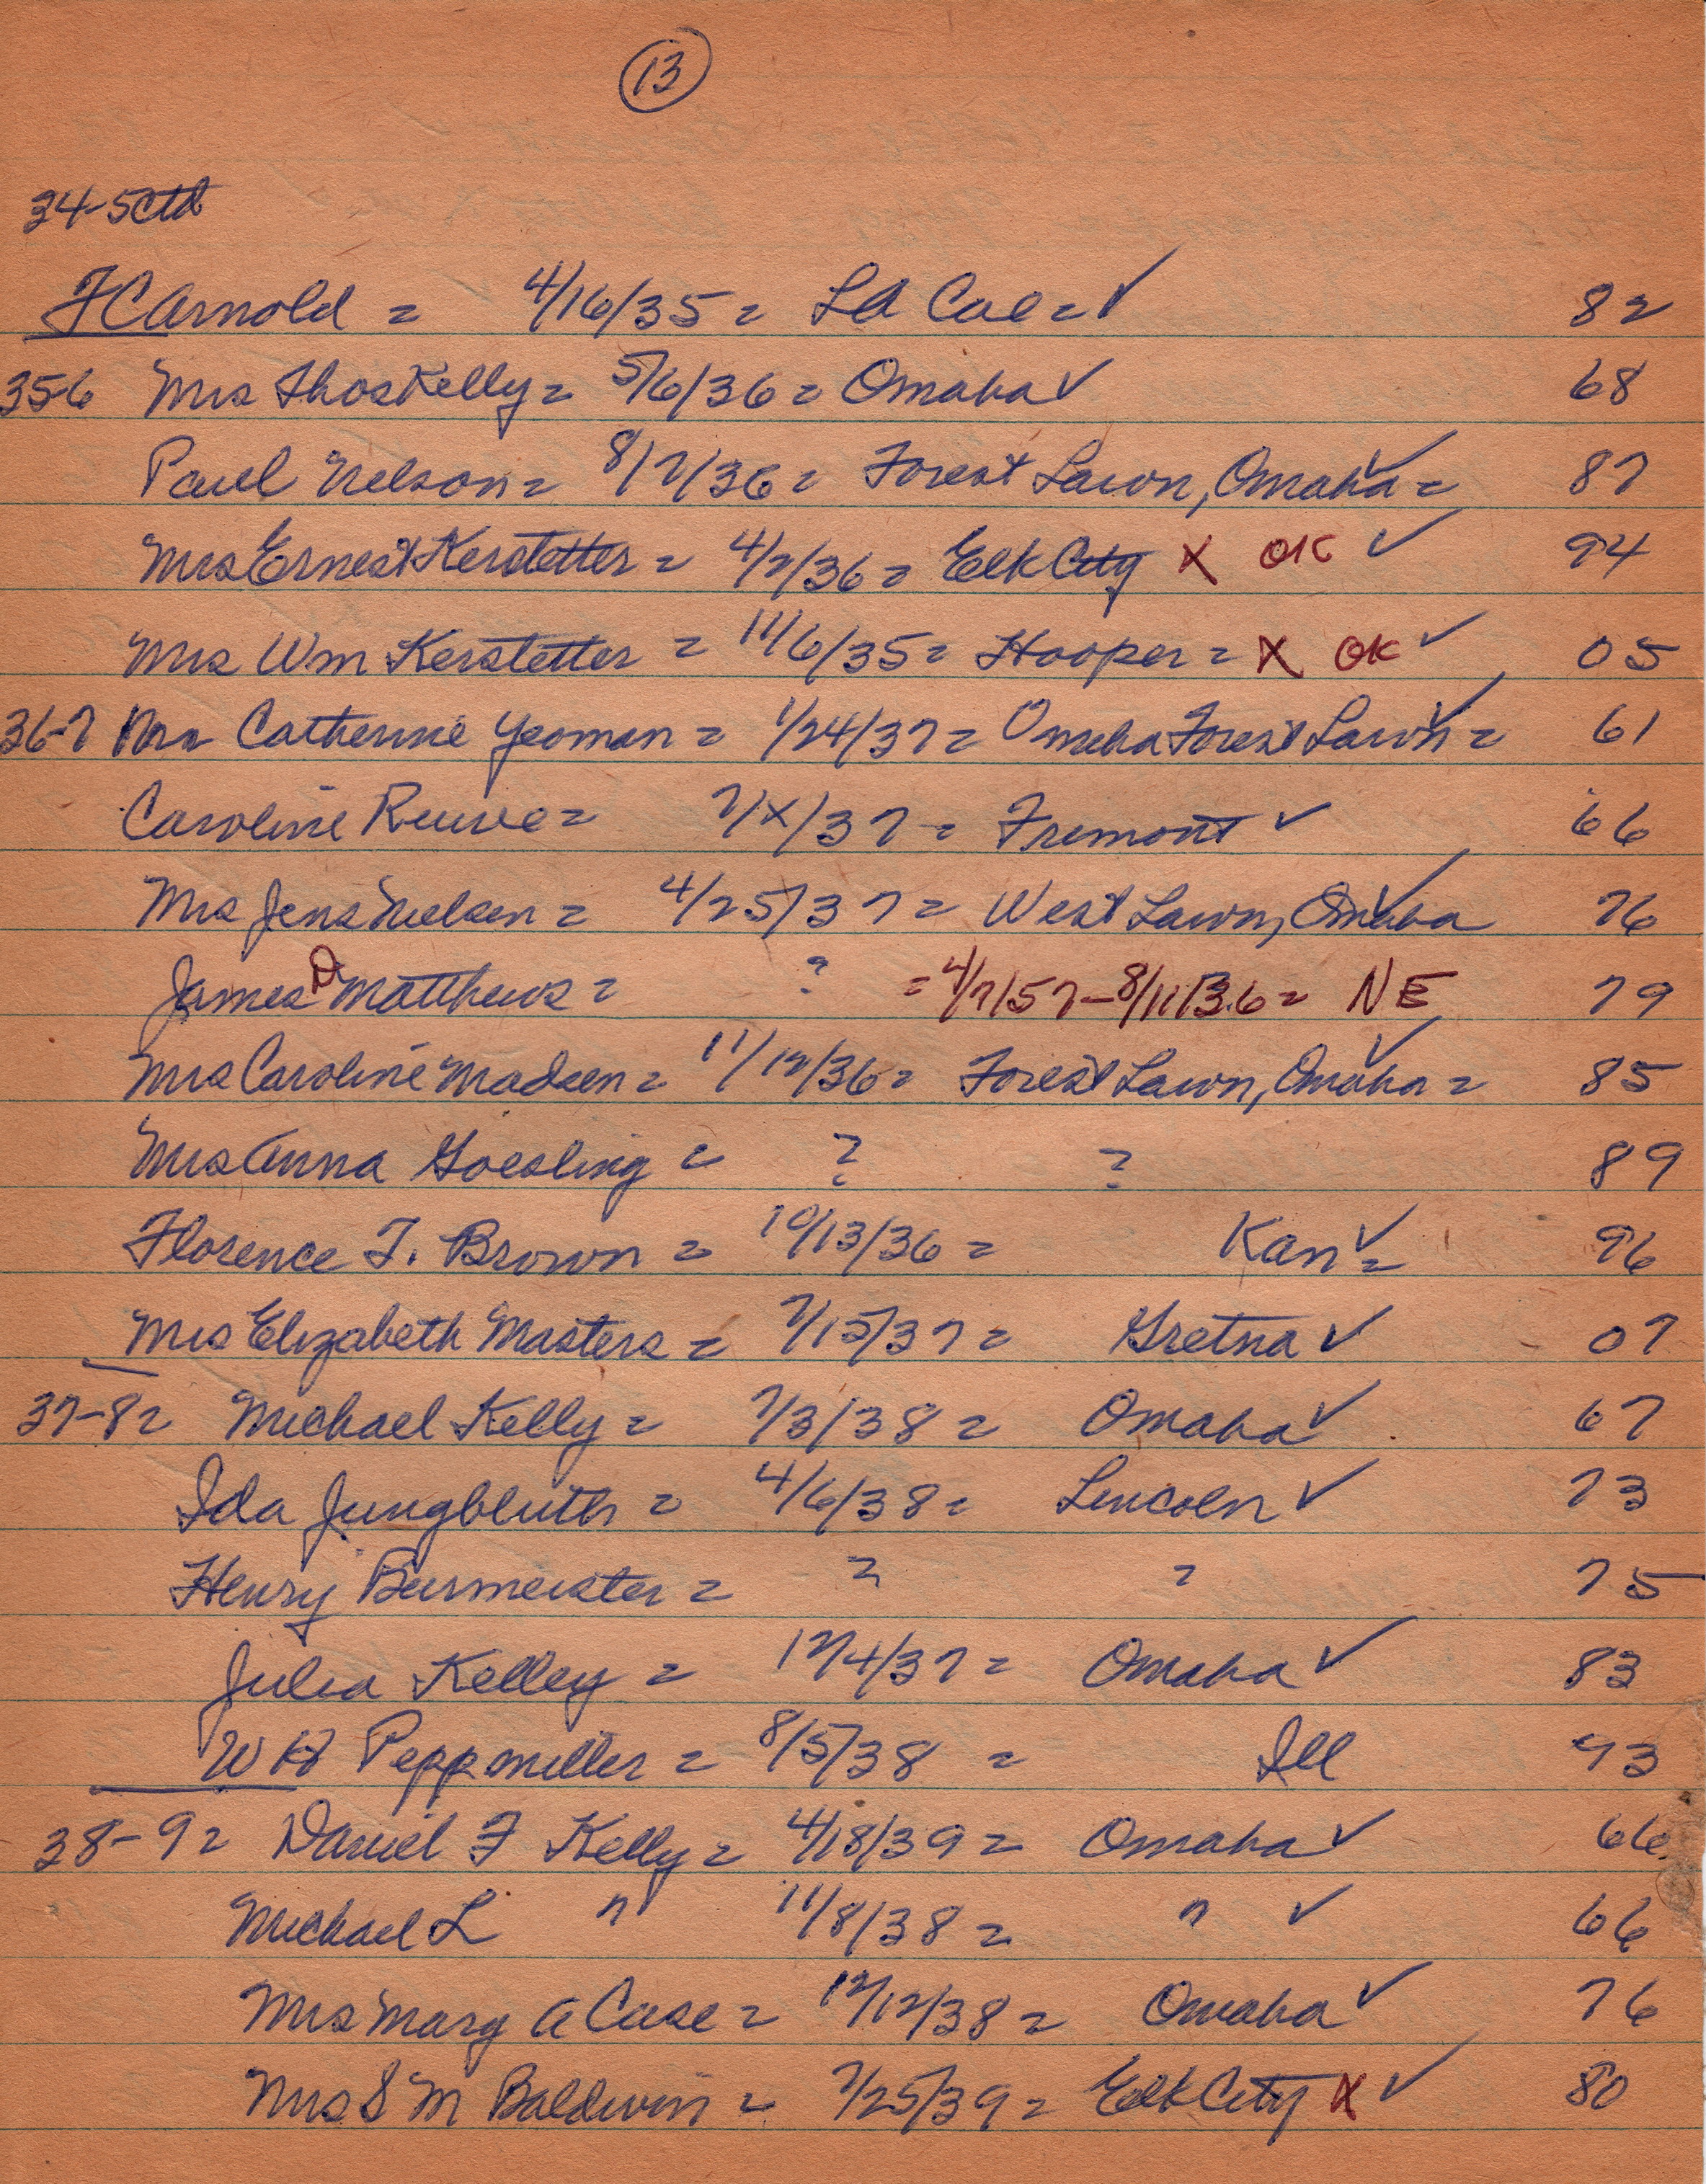 13
34-5 Ctd
F C Arnold = 4/16/35 = LA Cal = ✓ 82
35-6 Mrs Thos Kelly = 5/6/36 = Omaha ✓ 68
Paul Nelson = 8/7/36 = Forest Lawn, Omaha ✓ = 87
Mrs Ernest Kerstetter = 4/2/36 = Elk City X OK ✓ 94
Mrs Wm Kerstetter = 11/6/35 = Hooper = X OK ✓ 05
36-7 Mrs Catherine Yeoman = 1/24/37 = Omaha Forest Lawn ✓ = 61
Caroline = 7/X/37 = Fremont ✓ 66
Mrs Jens Nielsen = 4/25/37 = West Lawn, Omaha ✓ 76
James D Matthews = ? = 4/7/57-8/11/36 = NE 79
Mrs Caroline Madsen = 11/12/36 = Forest Lawn, Omaha ✓ = 85
Mrs Anna Goesling = ? ? 89
Florence T. Brown = 10/13/36 = Kan ✓ = 96
Mrs Elizabeth Masters = 7/15/37 = Gretna ✓ 07
37-8 = Michael Kelly = 7/3/38 = Omaha ✓ 67
Ida Jungbluth = 4/6/38 = Lincoln ✓ 73
Henry Burmeister = ? ? 75
Julia Kelley = 12/4/37 = Omaha ✓ 83
W H Peppmiller = 8/5/38 = Ill 93
38-9 = Daniel F Kelly = 4/18/39 = Omaha ✓ 66
Michael L " 11/8/38 = " ✓ 66
Mrs Mary A Case = 12/12/38 = Omaha ✓ 76
Mrs S M Baldwin = 7/25/39 = Elk City X ✓ 80